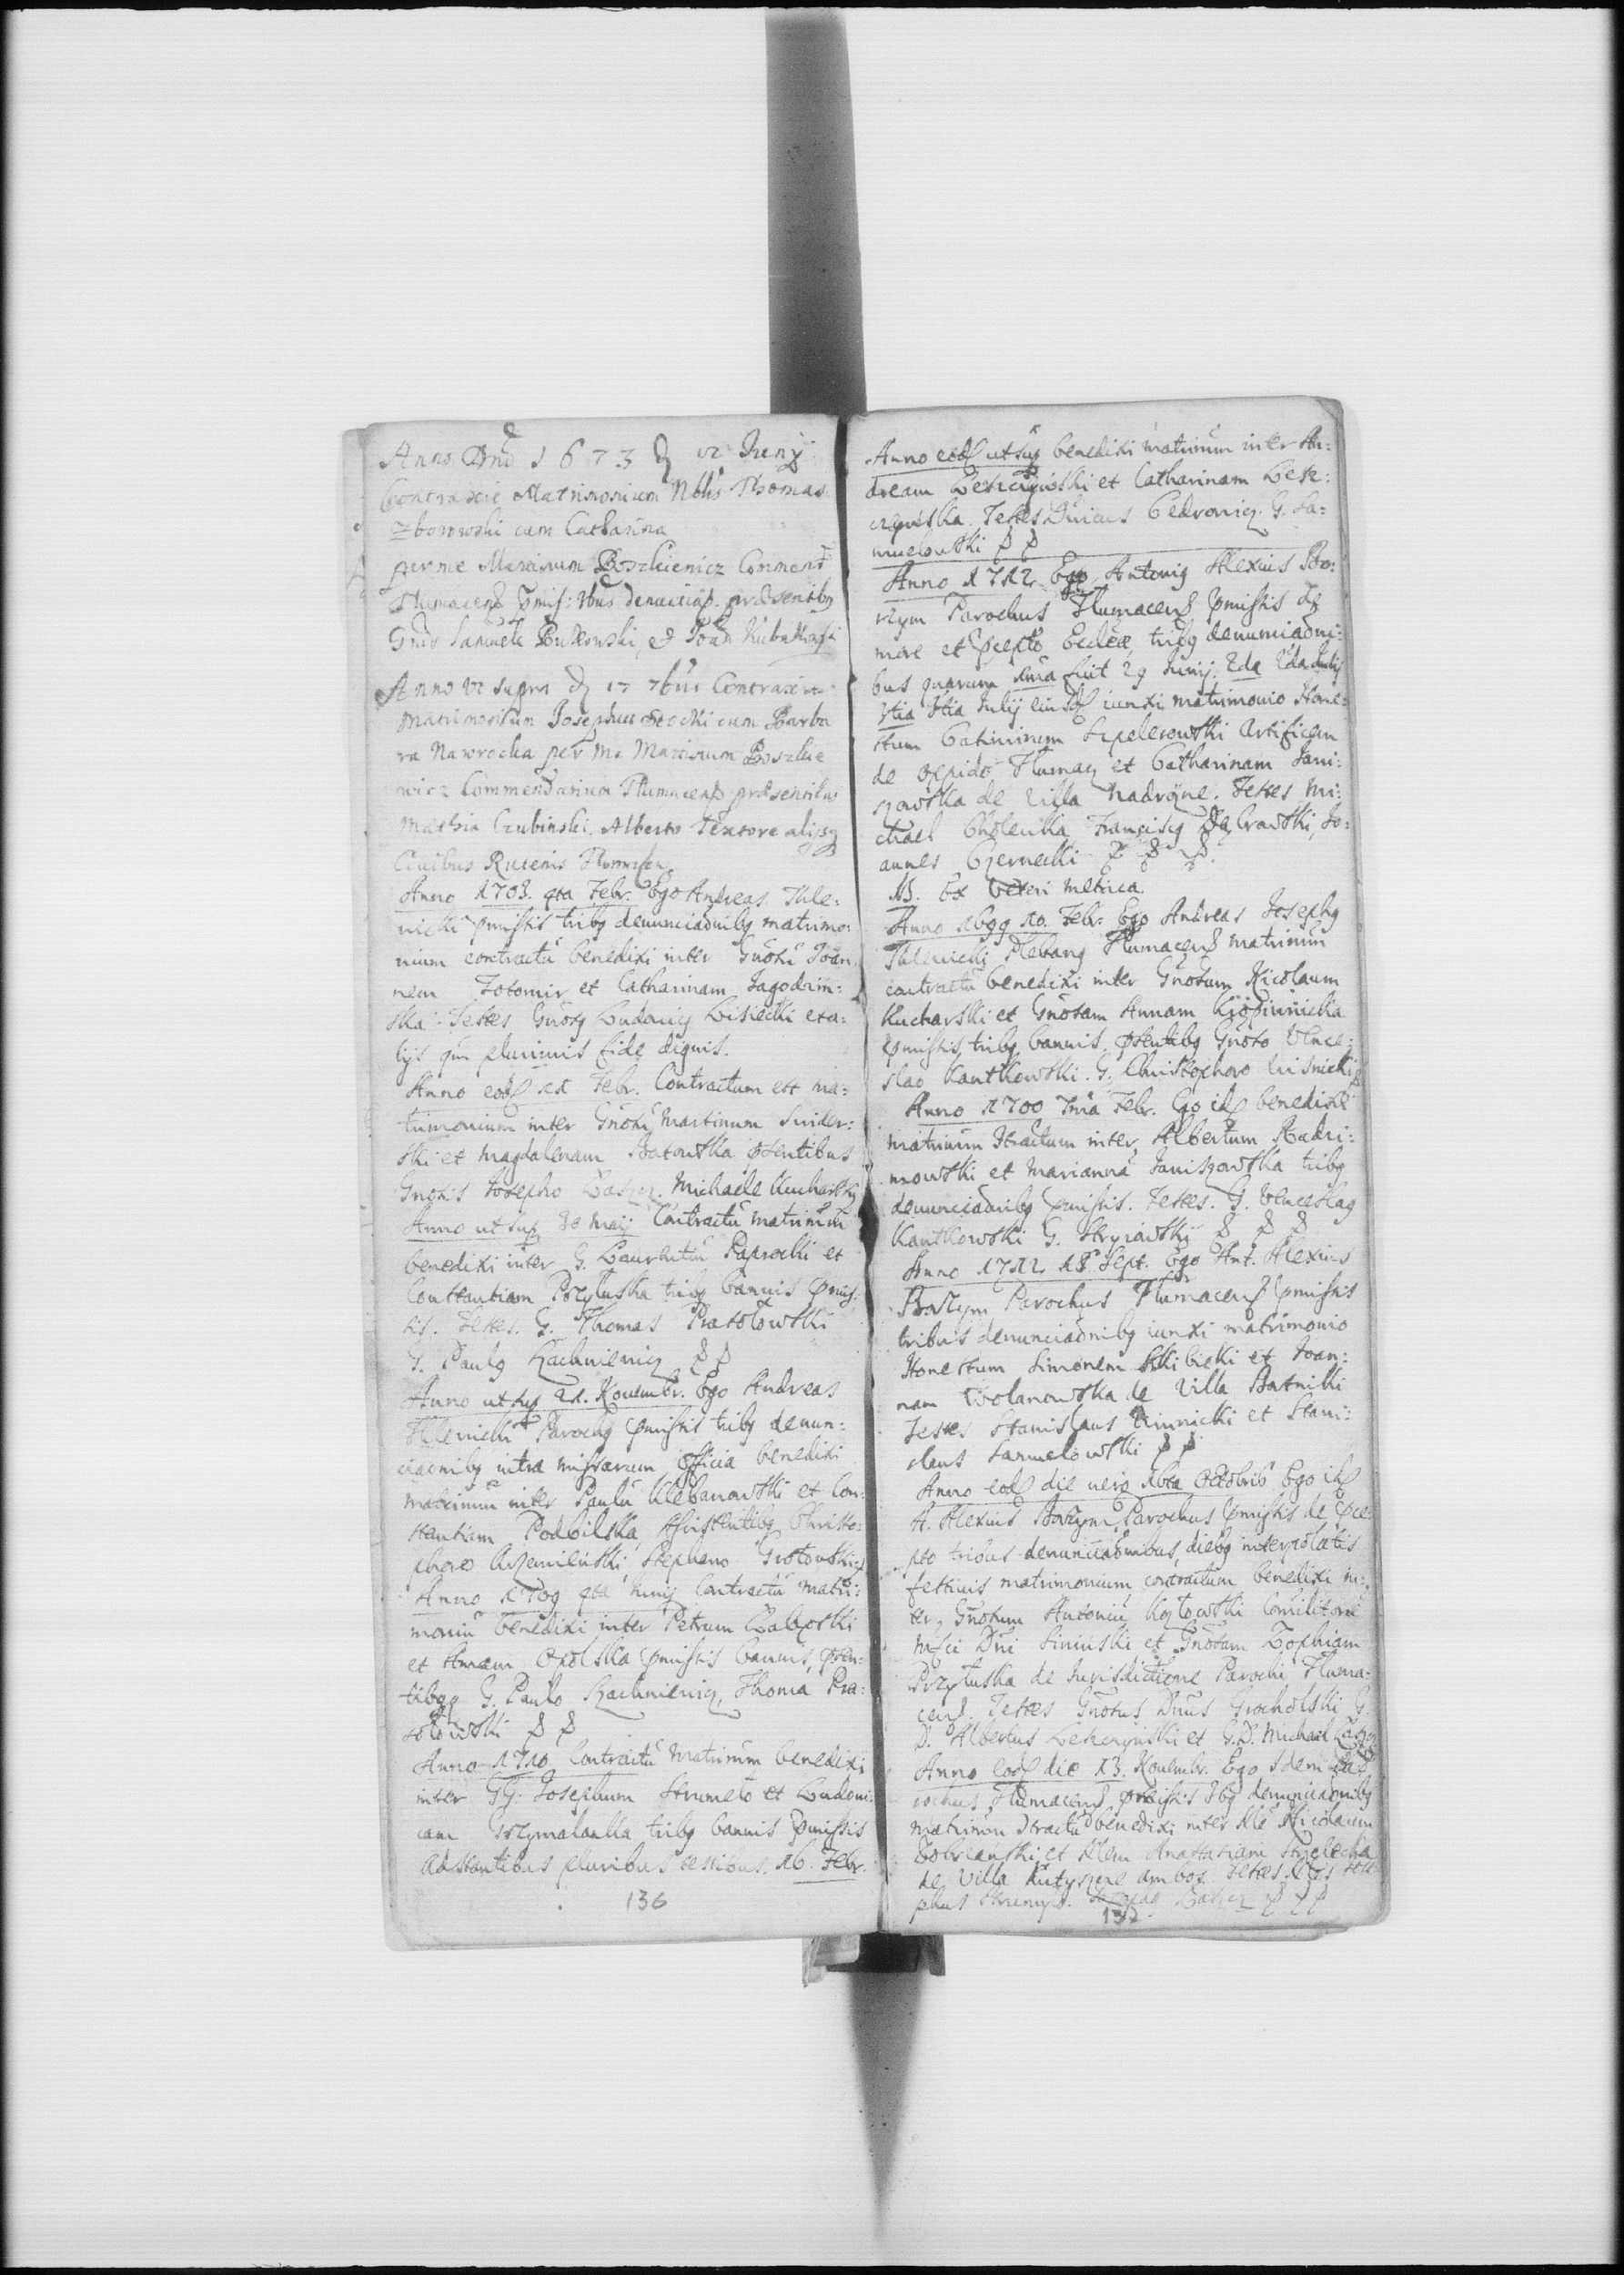 Anno Dni 1673 d 12 Junij
Contraxit Matrimonium Nblis Thomas
Zborowski cum Catharina
per me Marcinum Boszkiewicz Commend
Tlumacens pmis: 3bus denuciao. præsentibq
Gnis Samuele Bukowski, et Joan
Anno ut supra d 17 7bris Contraxit
Matrimonium Josephus Stocki cum Barba
ra Nawrocka per me Marcinum Boszkie
wicz Commendarium Tlumacens præsentibus
Mathia Czubinski. Alberto Textore alijsq
Civibus Rutenis Tlumacen
Anno 1703. 4ta Febr. Ego Andreas Thle:
nicki pmissis tribq denunciaõnibq matrimo:
nium contractũ benedixi inter Gñosũ Joan
nem Zotomir et Catharinam Jagodzin:
ska. Testes Gñosq Ludovicq Lisiecki et a:
lijs qm plurimis fide dignis.
Anno eod 11 Febr. Contractum est ma:
trimonium inter Gñosũ Martinum Swider:
ski et Magdalenam Batowska pñsentibus
Gnosis Josepho Laszcz. Michaele Kucharski
Anno ut sup 30 Maij Contractũ matrimũm
benedixi inter G. Laurentiũ Paprocki et
Constantiam Przyluska tribq bannis pmis:
sis. Testes. G. Thomas Pratolowski
G. Paulq Lachniewicz
Anno ut sup 21. Novembr. Ego Andreas
Thlenicki Parochq pmissis tribq denun:
ciaõnibq intra missarum officia benedixi
matrimũm inter Paulũ Klebanowski et Con:
stantiam Podbilska, assistentibq Christo:
phoro Krzemieński, Stephano Grotowski
Anno 1709 4ta Junij Contractũ matri:
moniũ benedixi inter Petrum Zaleski
et Annam Opolska pmissis bannis, pñsen:
tibqq G. Paulo Lachniewicz, Thoma Pra:
tolowski
Anno 1710 Contractũ Matrimũm benedixi
inter GG. Josephum Strumelo et Ludovi:
cam Grzymalanka tribq bannis pmissis
adstantibus pluribus testibus. 16. Febr.
136
Anno eod ut sup benedixi matrimũm inter An:
dream Leszczyński et Catharinam Lesz:
czyńska. Testes Dñicus Cedrowicz. G. Sa:
muelowski
Anno 1712 Ego Antoniq Alexius Bo:
rzym Parochus Tlumacens pmissis de
more et pcepto Eccliæ, tribq denunciaõni:
bus quarum 1ma fuit 29 Junij. 2da 2da Julij
3tia 3tia Julij eiusd iunxi matrimonio Hone:
stum Casimirum Szpelerowski Artificem
de oppido Tlumacz et Catharinam Jani:
szowska de Villa Nadrozne. Testes Mi:
chael Cholewka Franciscq Dąbrowski, Jo:
annes Czernecki
NB. Ex Veteri Metrica.
Anno 1699 10. Febr. Ego Andreas Josephq
Thlenicki Plebanq Tlumacens matrimũm
contractũ benedixi inter Gñosum Nicolaum
Kucharski et Gñosam Annam
pmissis tribq bannis, pñsentibq Gñoso Vence:
slao Kantkowski. G. Christophoro
Anno 1700 7ma Febr. Ego id benedixi
matrimũm Stractum inter Albertum
et Mariannã Janiszowska tribq
denunciaõnibq pmissis. Testes. G. Venceslaq
Kantkowski G.
Anno 1712 18 Sept. Ego Ant. Alexius
Borzym Parochus Tlumacens pmissis
tribus denunciaõnibq iunxi matrimonio
Honestum Simonem Skibicki et Joan:
nam Wolanowska de Villa Bratniki
Testes Stanislaus Winnicki et Stani:
slaus Samuelowski
Anno eod die vero 16ta Octobris Ego id
A. Alexius Borzym Parochus pmissis de pce:
pto tribus denunciaõnibus, diebq interpolatis
festivis matrimonium contractum benedixi in:
ter Gñosum Antoniũ Kozlowski Comilitonẽ
Mfci Dni Siniuski et Gñosam Zophiam
Przyluska de Jurisdictione Parochi Tluma:
cens. Testes Gñosus Dnus Grocholski G.
D. Albertus Leszczyński et G.D. Michael Laszcz
Anno eod die 13. Novembr. Ego Idem Pa
rochus Tlumacens præmissis 3bq denunciaõnibq
matrimũm Stractũ benedixi inter Nle Nicolaum
Dobrzanski et Nlem Anastasiam Strzelecka
de Villa ambos. Testes Nles Jose
phus Laszcz
137